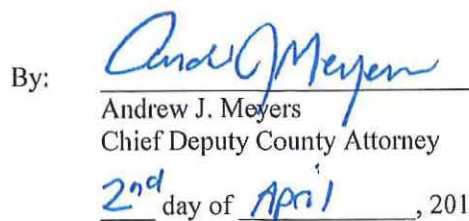 By: Andrew J Meyers
Andrew J. Meyers
Chief Deputy County Attorney
2nd day of April, 201